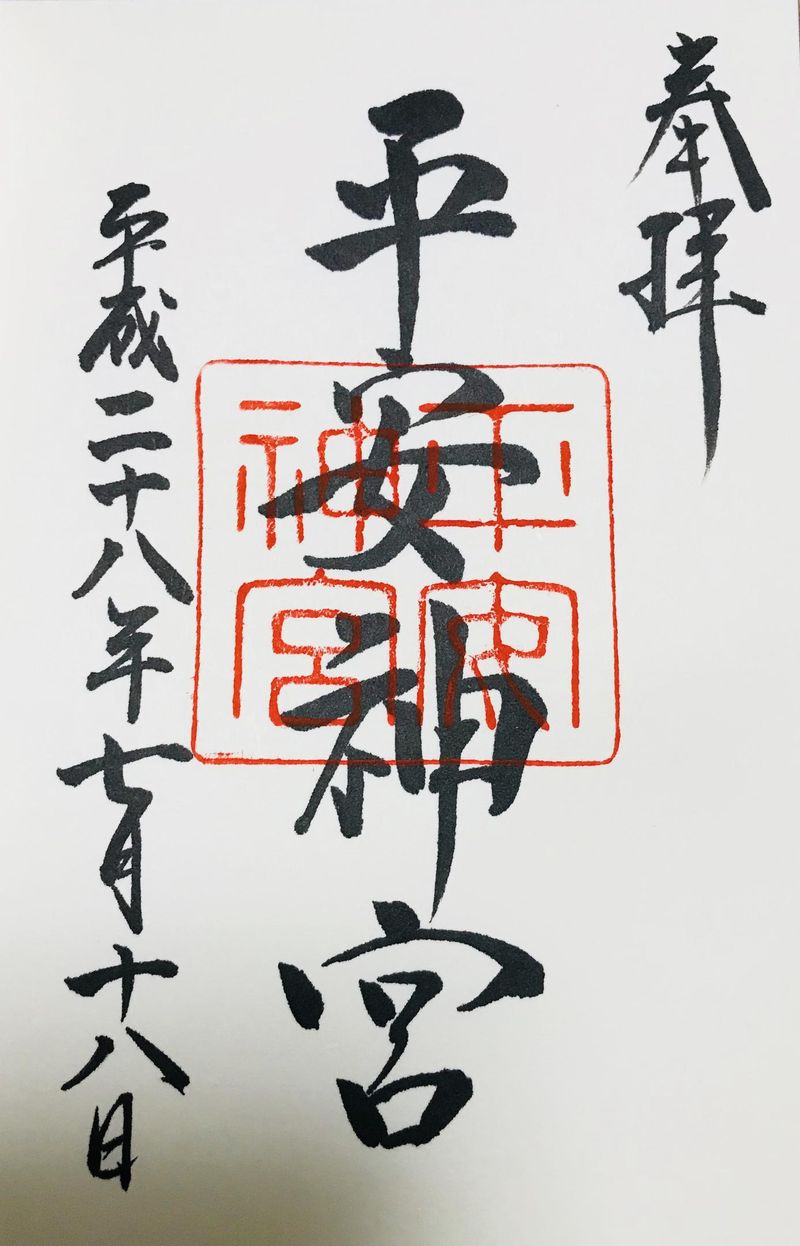 奉拝
平安神宮
平安
神宮
平成二十八年七月十八日